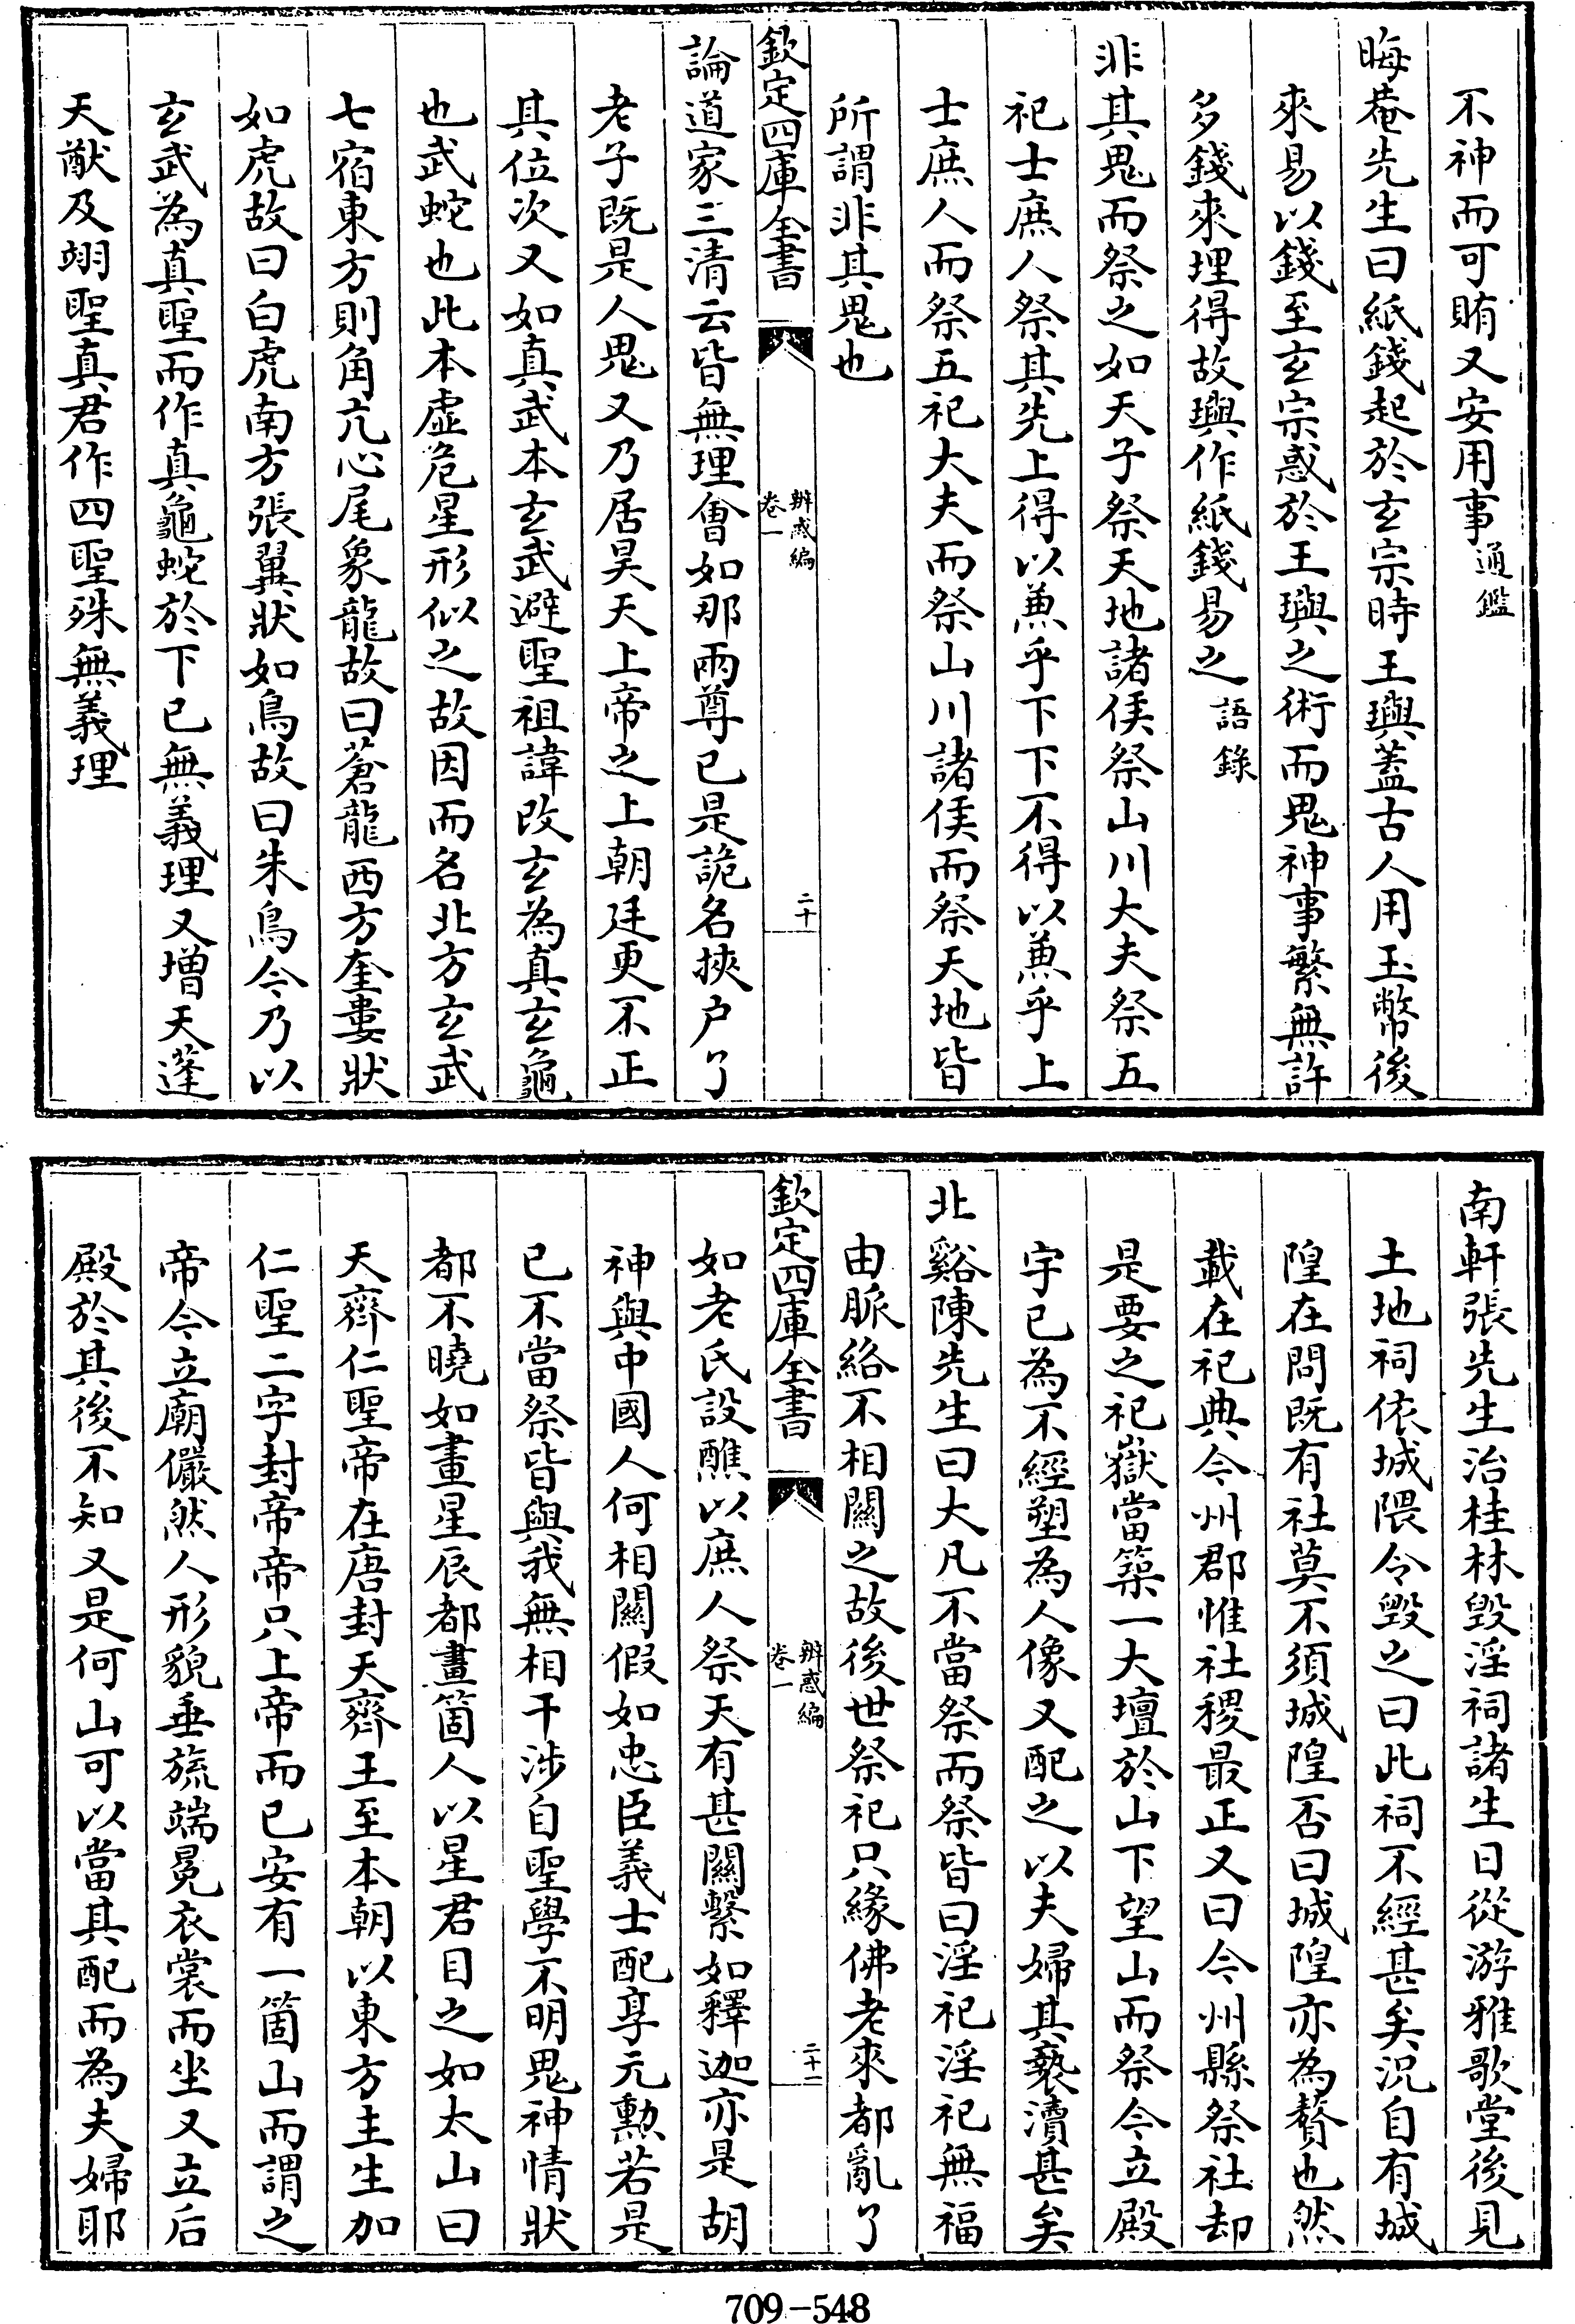 不神而可賄又安用事通鑑
晦菴先生曰紙錢起於玄宗時王璵蓋古人用玉幣後
來易以錢至玄宗惑於王璵之術而鬼神事繁無許
多錢來埋得故璵作紙錢易之語錄
非其鬼而祭之如天子祭天地諸侯祭山川大夫祭五
祀士庶人祭其先上得以兼乎下下不得以兼乎上
士庶人而祭五祀大夫而祭山川諸侯而祭天地皆
所謂非其鬼也
欽定四庫全書
辨惑編
卷一
二十
論道家三清云皆無理會如那兩尊已是詭名挾户了
老子既是人鬼又乃居昊天上帝之上朝廷更不正
其位次又如真武本玄武避聖祖諱改玄為真玄龜
也武蛇也此本虛危星形似之故因而名北方玄武
七宿東方則角亢心尾象龍故曰蒼龍西方奎婁狀
如虎故曰白虎南方張翼狀如鳥故曰朱鳥今乃以
玄武為真聖而作真龜蛇於下已無義理又增天蓬
天猷及翊聖真君作四聖殊無義理
南軒張先生治桂林毀淫祠諸生日從游雅歌堂後見
土地祠依城隈令毀之曰此祠不經甚矣況自有城
隍在問既有社莫不須城隍否曰城隍亦為贅也然
載在祀典今州郡惟社稷最正又曰今州縣祭社却
是要之祀嶽當築一大壇於山下望山而祭今立殿
宇已為不經塑為人像又配之以夫婦其褻瀆甚矣
北谿陳先生曰大凡不當祭而祭皆曰淫祀淫祀無福
由脈絡不相關之故後世祭祀只緣佛老來都亂了
欽定四庫全書
辨惑編
卷一
二十一
如老氏設醮以庶人祭天有甚關繫如釋迦亦是胡
神與中國人何相關假如忠臣義士配享元勲若是
已不當祭皆與我無相干涉自聖學不明鬼神情狀
都不曉如畫星辰都畫箇人以星君目之如太山曰
天齊仁聖帝在唐封天齊王至本朝以東方主生加
仁聖二字封帝帝只上帝而已安有一箇山而謂之
帝今立廟儼然人形貌垂旒端冕衣裳而坐又立后
殿於其後不知又是何山可以當其配而為夫婦耶
709-548